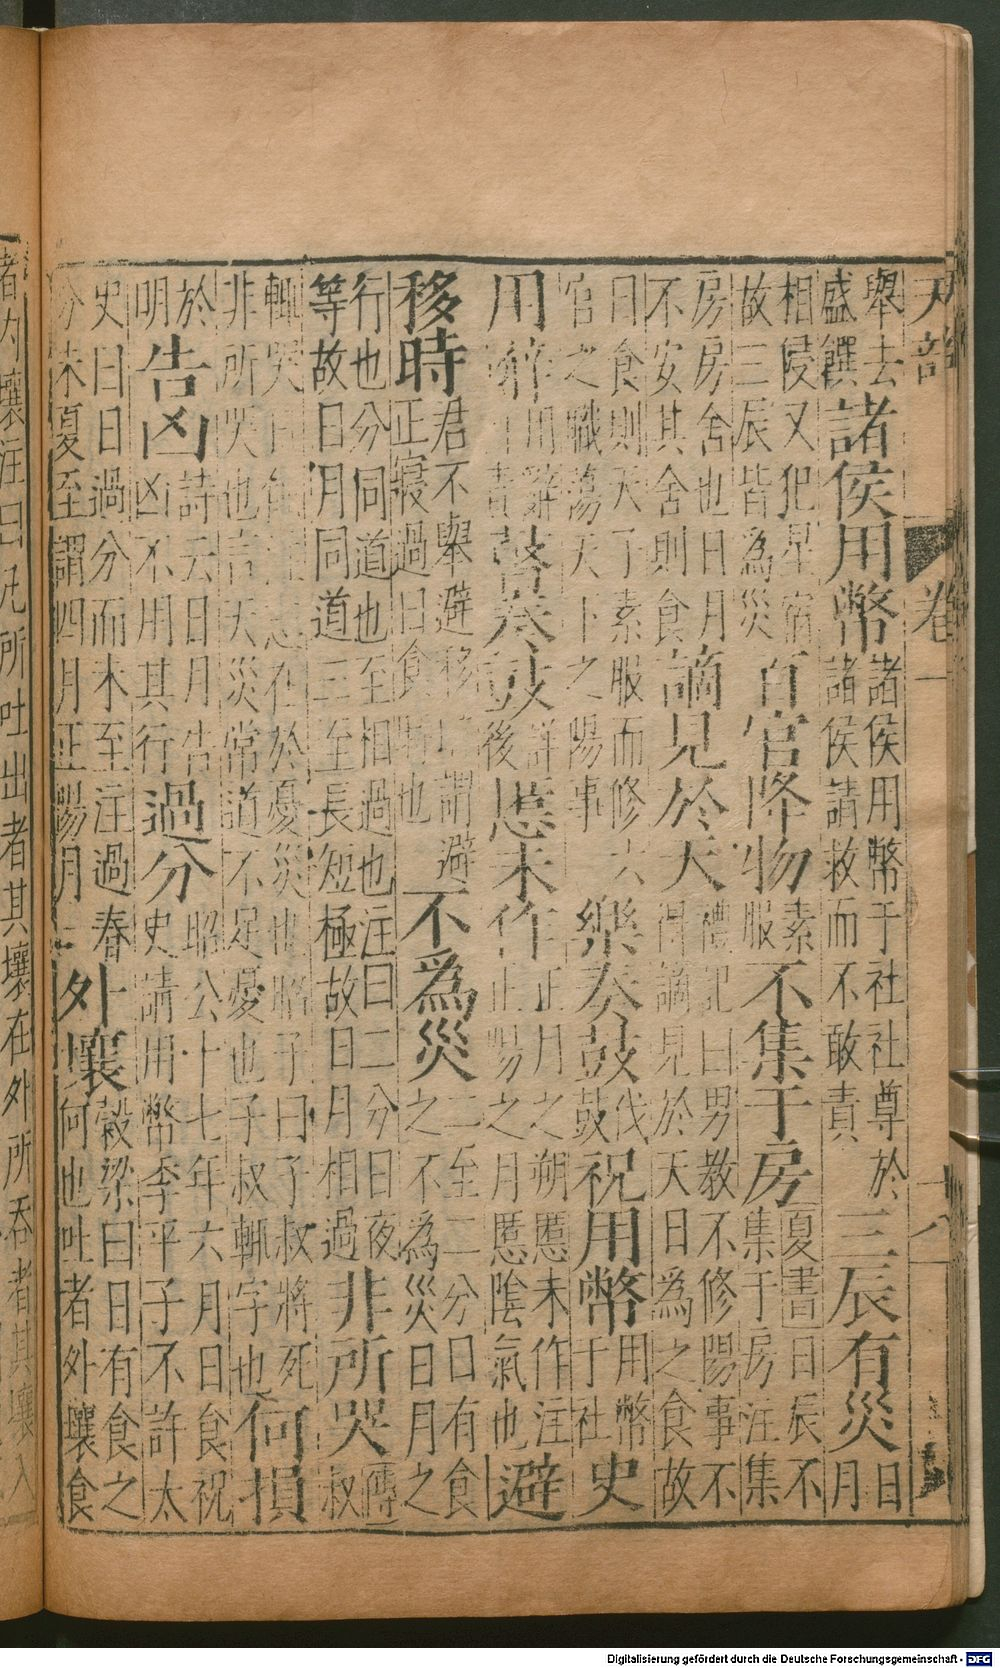 天部 卷一 十八
舉去
盛饌
諸侯用幣
諸侯用幣于社社尊於
諸侯請救而不敢責
三辰有災
日
月
相侵又犯星宿
故三辰皆為災
百官降物
素
服
不集于房
夏書曰辰不
集于房注集
房房舍也日月
不安其舍則食
謫見於天
禮記曰男教不修陽事不
得謫見於天日為之食故
日食則天子素服而修六
官之職蕩天下之陽事
樂奏鼓
伐
鼓
祝用幣
用幣
于社
史
用辭
用辭
自責
瞽奏鼓
詳
後
慝未作
正月之朔慝未作注
正陽之月慝陰氣也
避
移時
君不舉避移時謂避
正寢過日食時也
不為災
二至二分日有食
之不為災日月之
行也分同道也至相過也注曰二分日夜
等故日月同道二至長短極故日月相過
非所哭
傳
叔
輒哭日食意在於憂災也昭子曰子叔將死
非所哭也言天災常道不足憂也子叔輒字也
何損
於
明
告凶
詩云日月告
凶不用其行
過分
昭公十七年六月日食祝
史請用幣季平子不許太
史曰日過分而未至注過春
分未夏至謂四月正陽月
外壤
穀梁曰日有食之
何也吐者外壤食
者内壤注曰凡所吐出者其壤在外所吞者其壤入
Digitalisierung gefördert durch die Deutsche Forschungsgemeinschaft - DFG